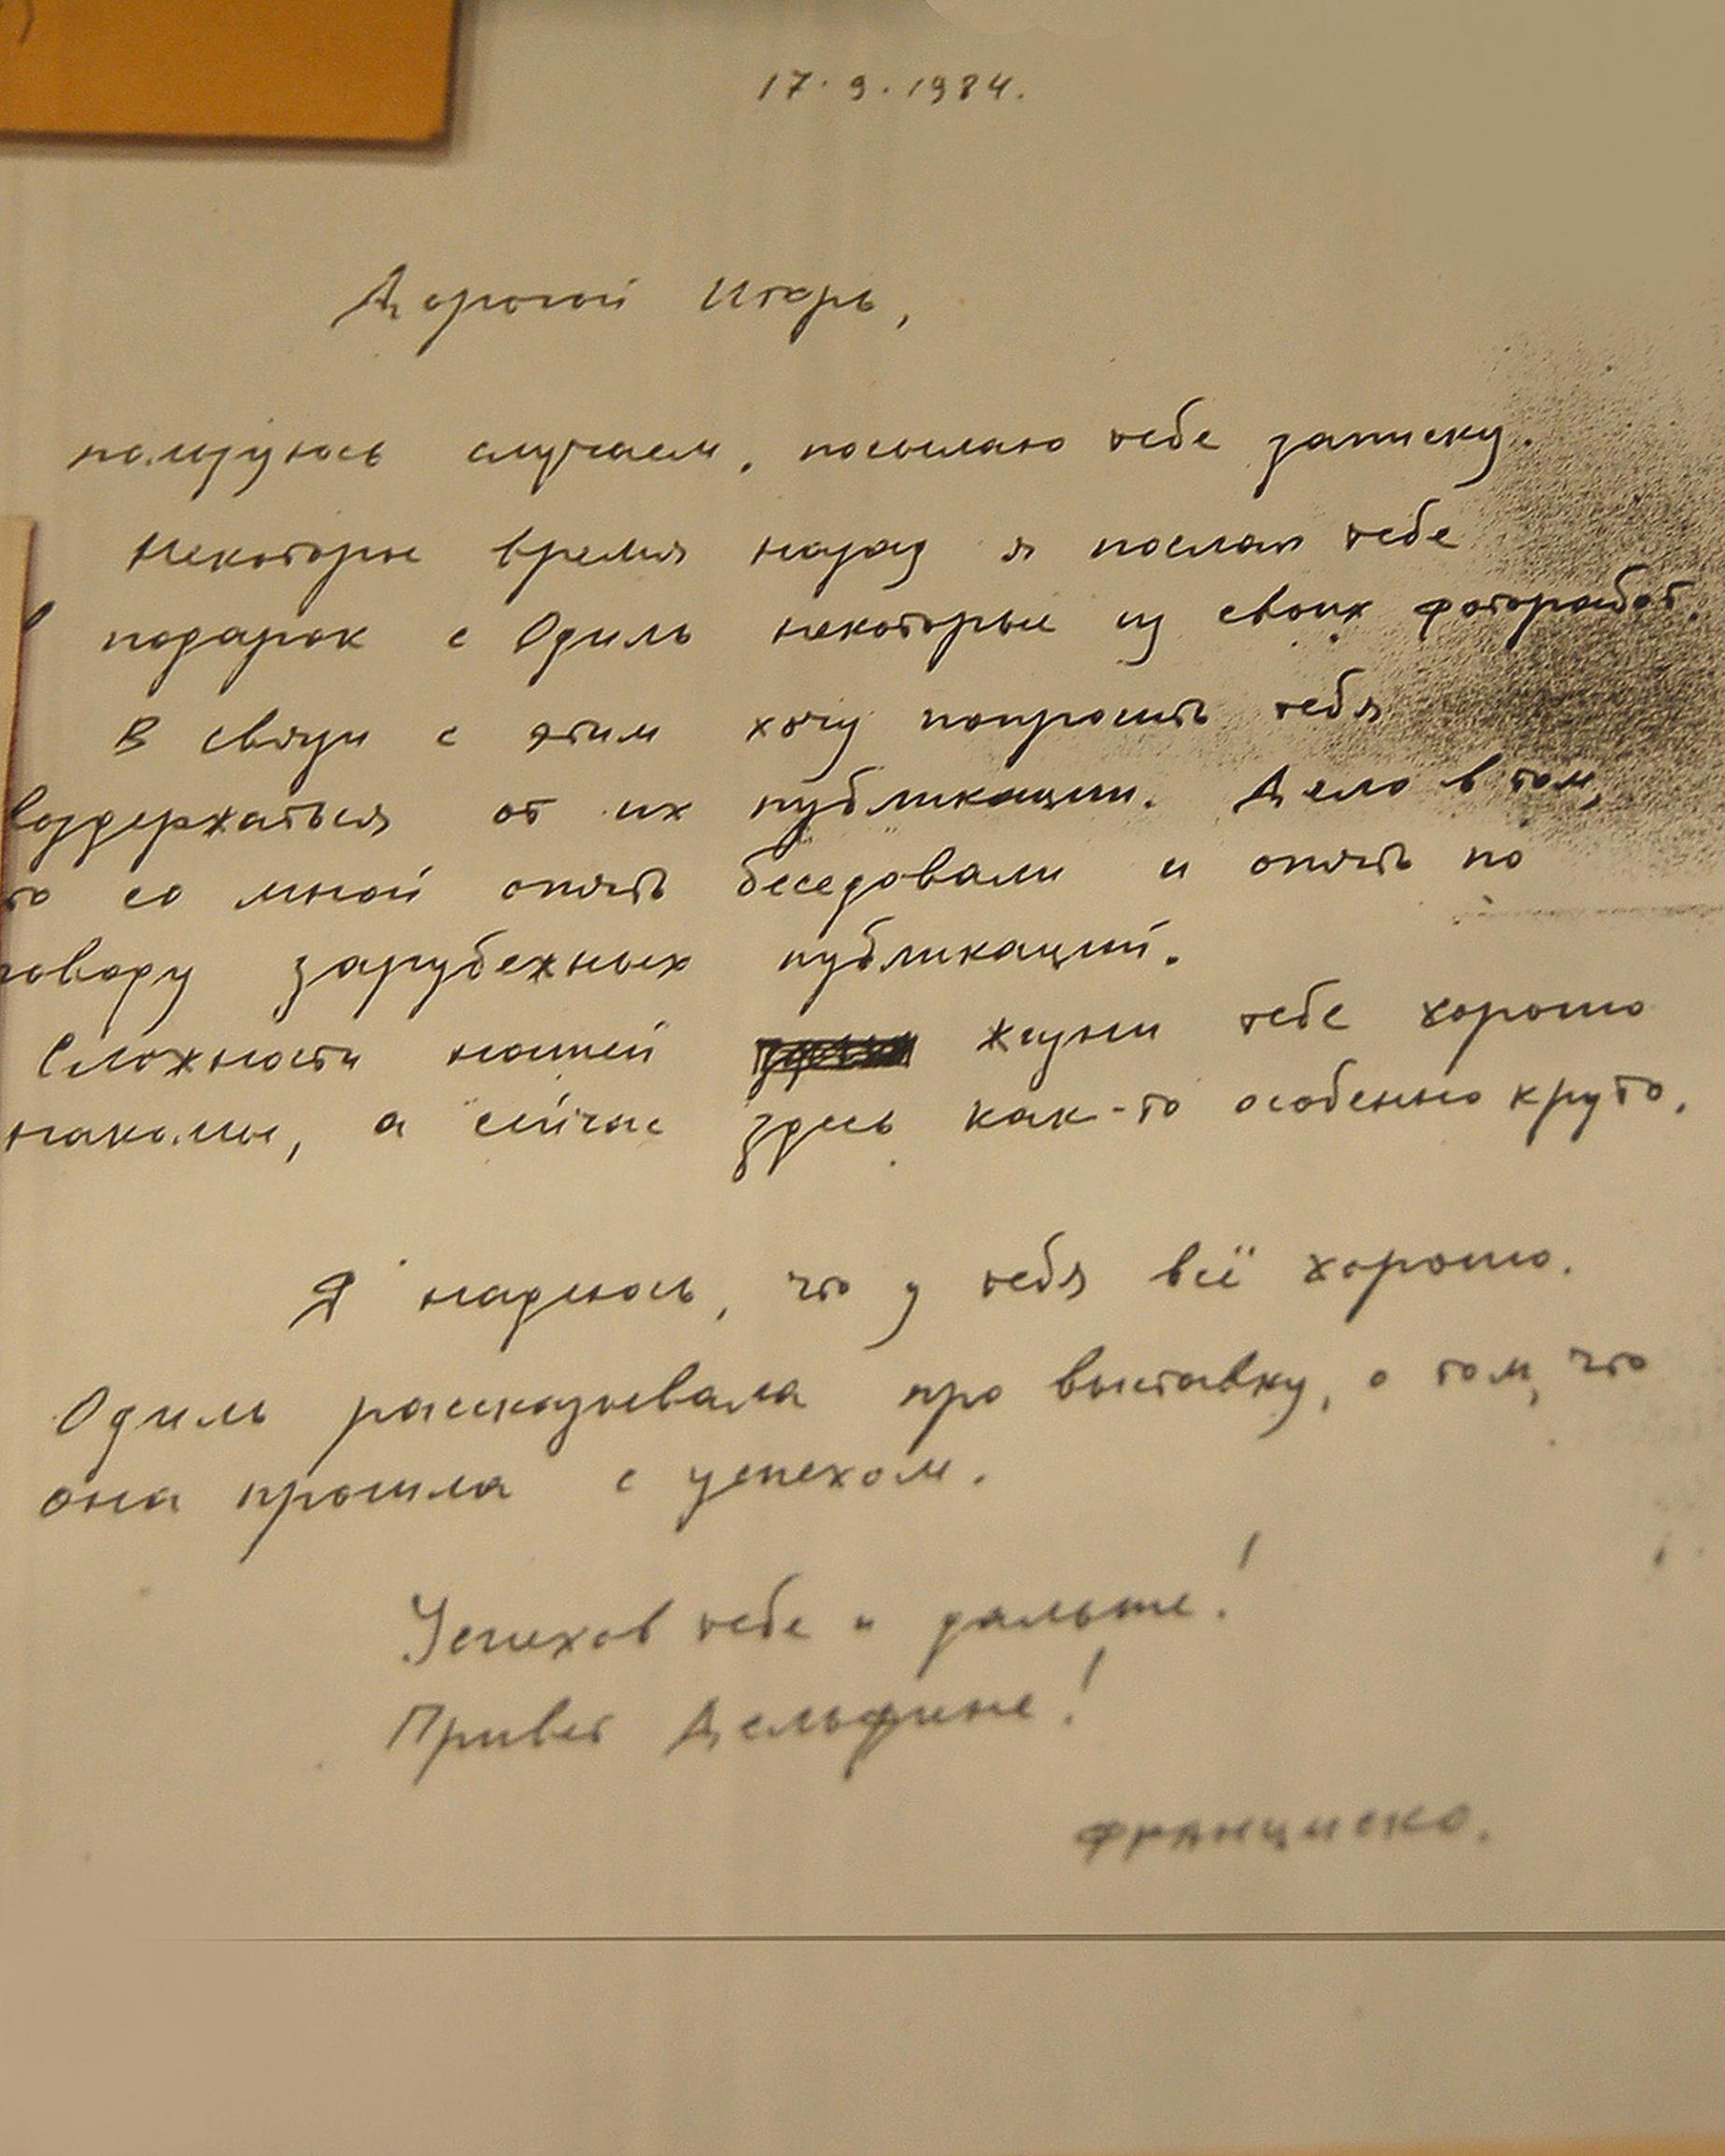 17.9.1984.
Дорогой Игорь,
пользуюсь случаем, посылаю тебе записку.
Некоторое время назад я послал тебе
в подарок с Одиль некоторые из своих фоторабот.
В связи с этим хочу попросить тебя
воздержаться от их публикации. Дело в том,
то со мной опять беседовали и опять по
говору зарубежных публикаций.
Сложности нашей жизни тебе хорошо
накомы, а сейчас здесь как-то особенно круто.
Я надеюсь, что у тебя всё хорошо.
Одиль рассказывала про выставку, о том, что
она прошла с успехом.
Успехов тебе и дальше!
Привет Дельфине!
Франциско.